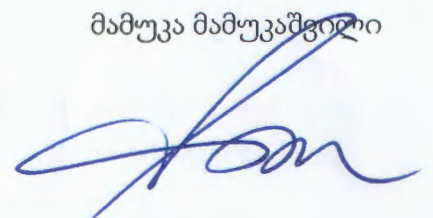 მამუკა მამუკაშვილი